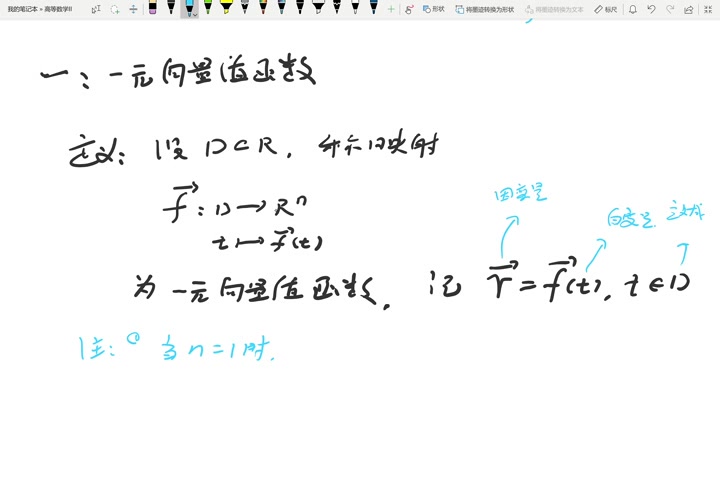 我的笔记本 » 高等数学II
形状 将墨迹转换为形状 将墨迹转换为文本 标尺
一：一元向量值函数
定义：设 D⊂R，称映射
f⃗ : D → Rⁿ
t ↦ f⃗(t)
为一元向量值函数，记 r⃗ = f⃗(t), t∈D
因变量 自变量 定义域
注：① 当 n=1 时，